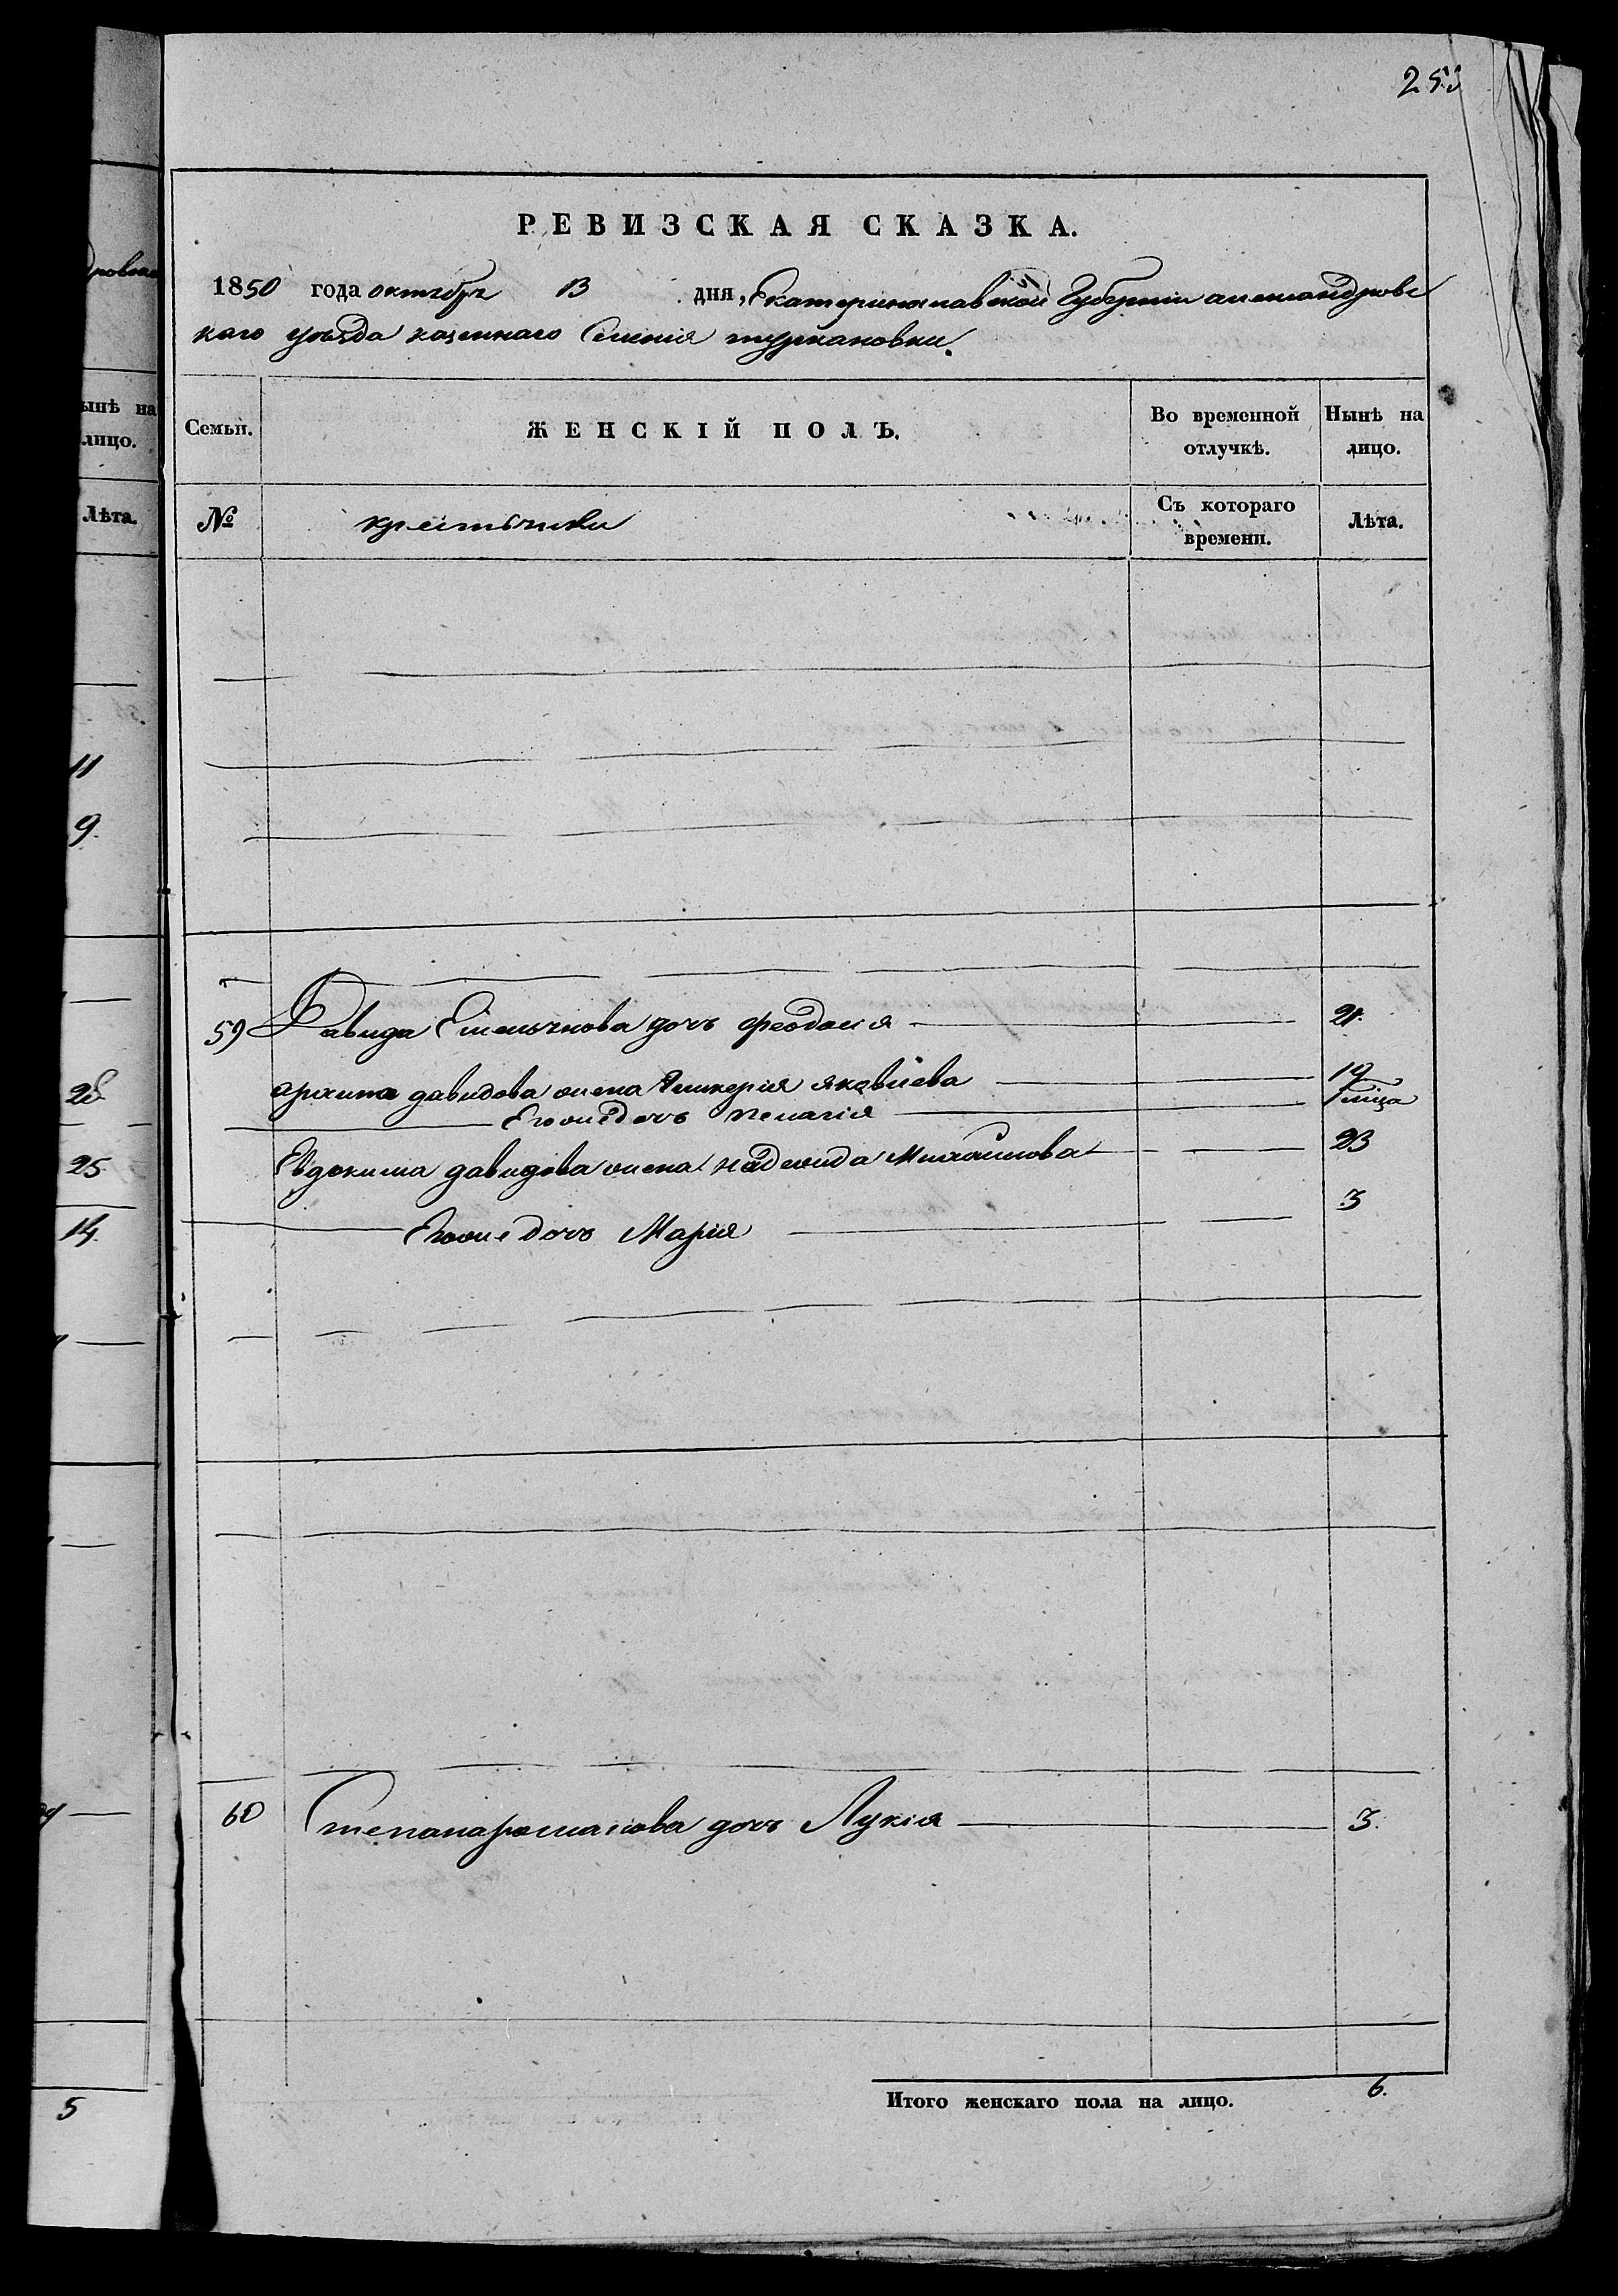 253
РЕВИЗСКАЯ СКАЗКА.
1850 года октября 13 дня, Екатеринославской Губерніи александровс
каго уѣзда казеннаго Селенія туркановки.
Семьи. ЖЕНСКІЙ ПОЛЪ. Во временной отлучкѣ. Нынѣ на лицо.
№ крестьянки Съ котораго времени. Лѣта.
59 Давида Емельянова дочь феодосія 21.
архипа давидова жена Гликерія яковлева 19
Егоже дочь пелагія
Евдокима давидова жена надежда Михаилова 23
Егоже дочь Марія 3
60 Степана романова дочь Лукія 3.
Итого женскаго пола на лицо. 6.
ынѣ на
лицо.
Лѣта.
11
9.
28
25
14.
5